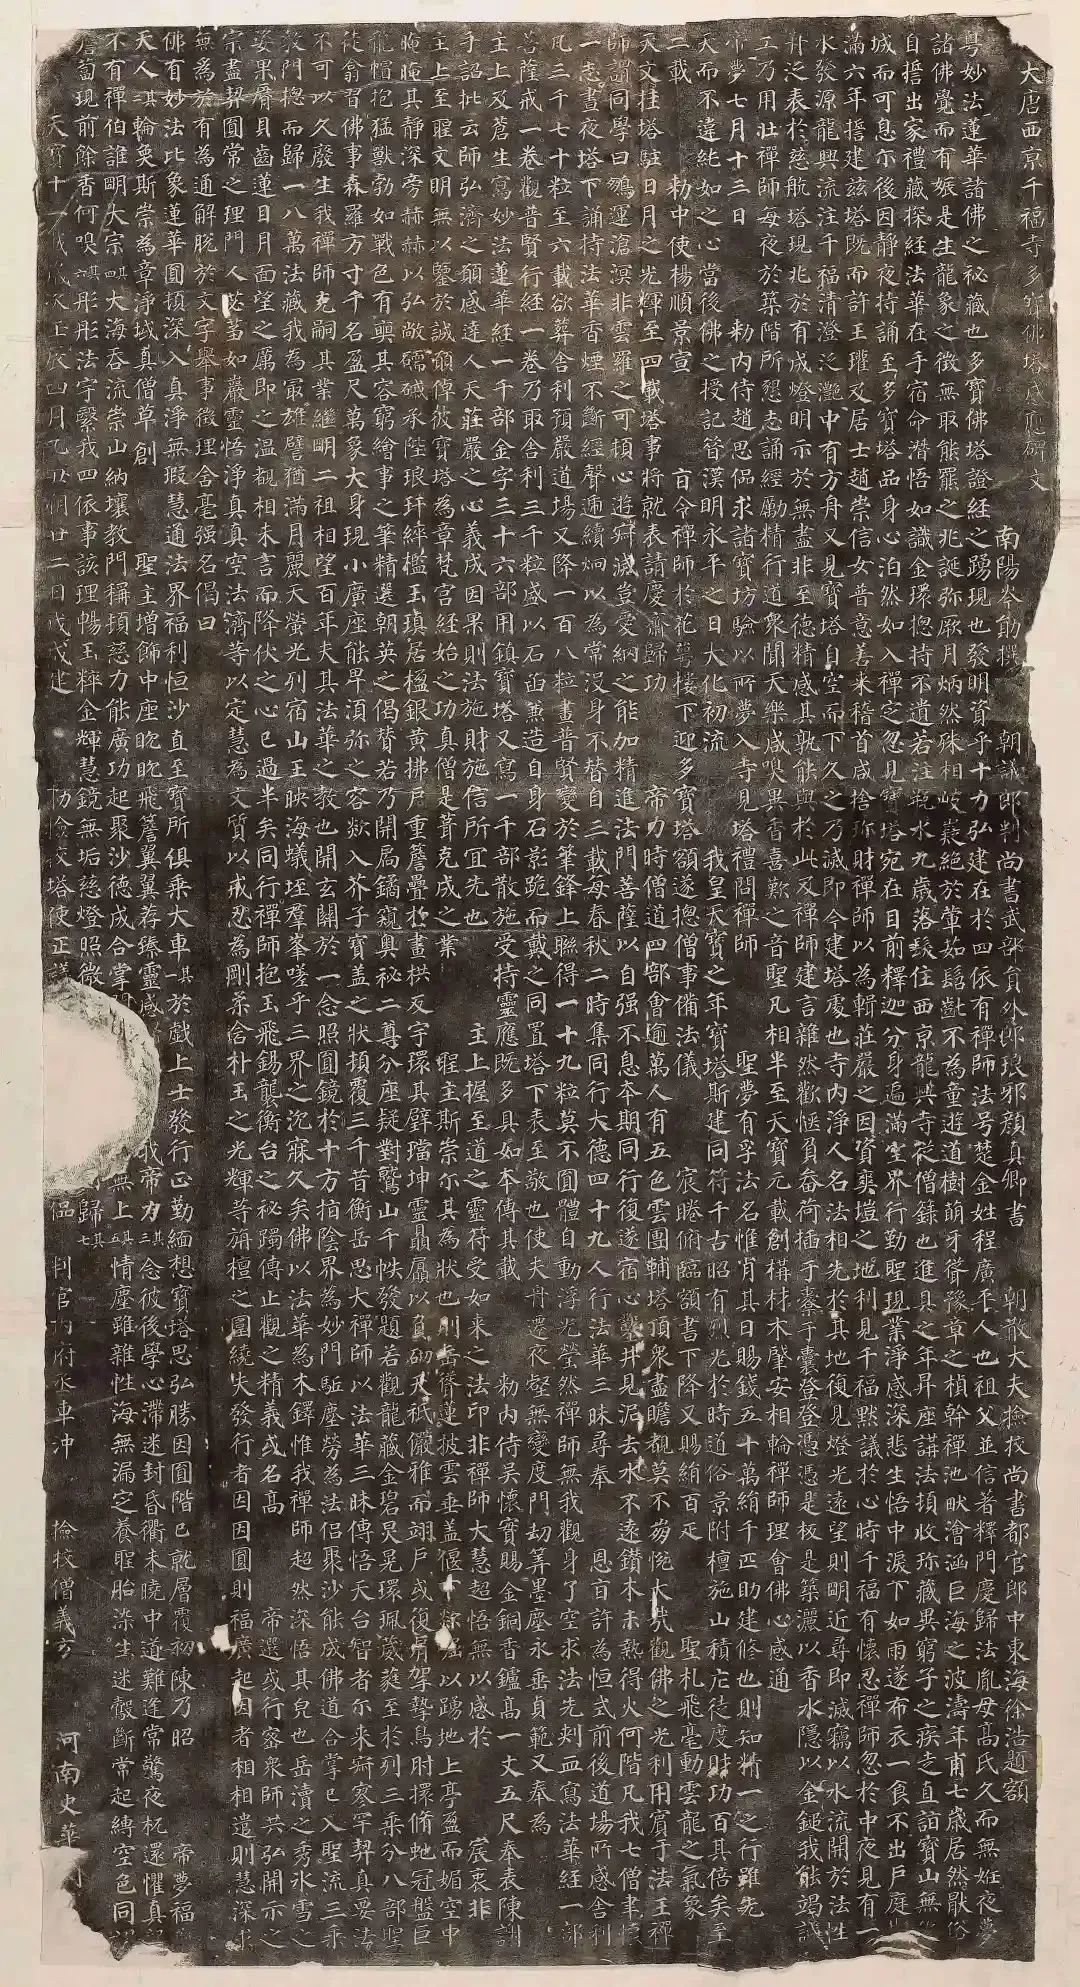 大唐西京千福寺多寶佛塔感應碑文
南陽岑勛撰 朝議郎判尚書武部員外郎琅邪顏真卿書 朝散大夫撿挍尚書都官郎中東海徐浩題額
粵妙法蓮華諸佛之祕藏也多寶佛塔證經之踴現也發明資乎十力弘建在於四依有禪師法号楚金姓程廣平人也祖父並信著釋門慶歸法胤母高氏久而無姙夜夢
諸佛覺而有娠是生龍象之徵無取熊羆之兆誕弥厥月炳然殊相岐嶷絕於葷茹髫齓不為童遊道樹萌牙聳豫章之楨幹禪池畎澮涵巨海之波濤年甫七歲居然猒俗
自誓出家禮藏探經法華在手宿命潛悟如識金環揔持不遺若注瓶水九歲落髮住西京龍興寺從僧籙也進具之年昇座講法頓收珎藏異窮子之疾走直詣寶山無化
城而可息尓後因靜夜持誦至多寶塔品身心泊然如入禪定忽見寶塔宛在目前釋迦分身遍滿空界行勤聖現業淨感深悲生悟中淚下如雨遂布衣一食不出戶庭
滿六年誓建茲塔既而許王瓘及居士趙崇信女普意善来稽首咸捨珎財禪師以為輯莊嚴之因資爽塏之地利見千福默議於心時千福有懷忍禪師忽於中夜見有一
水發源龍興流注千福清澄泛灧中有方舟又見寶塔自空而下久之乃滅即今建塔處也寺內淨人名法相先於其地復見燈光遠望則明近尋即滅竊以水流開於法性
舟泛表於慈航塔現兆於有成燈明示於無盡非至德精感其孰能與於此及禪師建言雜然歡愜負畚荷插于橐于囊登登憑憑是板是築灑以香水隱以金鎚我能竭誠
工乃用壯禪師每夜於築階所懇志誦經勵精行道衆聞天樂咸嗅異香喜歎之音聖凡相半至天寶元載創構材木肇安相輪禪師理會佛心感通
帝夢七月十三日 勑內侍趙思偘求諸寶坊驗以所夢入寺見塔禮問禪師 聖夢有孚法名惟肖其日賜錢五十萬絹千匹助建修也則知精一之行雖先
天而不違純如之心當後佛之授記昔漢明永平之日大化初流 我皇天寶之年寶塔斯建同符千古昭有烈光於時道俗景附檀施山積庀徒度財功百其倍矣至
二載 勑中使楊順景宣 旨令禪師於花萼樓下迎多寶塔額遂揔僧事備法儀 宸睠俯臨額書下降又賜絹百疋 聖札飛毫動雲龍之氣象
天文挂塔駐日月之光輝至四載塔事將就表請慶齋歸功 帝力時僧道四部會逾萬人有五色雲團輔塔頂衆盡瞻覩莫不崩悅大哉觀佛之光利用賓于法王禪
師謂同學曰鵬運滄溟非雲羅之可頓心遊寂滅豈愛網之能加精進法門菩薩以自强不息夲期同行復遂宿心鑿井見泥去水不遠鑽木未熱得火何階凡我七僧聿懷
一志晝夜塔下誦持法華香煙不斷經聲遞續炯以為常沒身不替自三載每春秋二時集同行大德四十九人行法華三昧尋奉 恩旨許為恒式前後道場所感舍利
凡三千七十粒至六載欲葬舍利預嚴道場又降一百八粒畫普賢變於筆鋒上聯得一十九粒莫不圓體自動浮光瑩然禪師無我觀身了空求法先刺血寫法華經一部
菩薩戒一卷觀普賢行經一卷乃取舍利三千粒盛以石函兼造自身石影跪而戴之同置塔下表至敬也使夫舟遷夜壑無變度門劫筭墨塵永垂貞範又奉為
主上及蒼生寫妙法蓮華經一千部金字三十六部用鎮寶塔又寫一千部散施受持靈應既多具如夲傳其載 勑內侍吳懷實賜金銅香鑪高一丈五尺奉表陳謝
手詔批云師弘濟之願感達人天莊嚴之心義成因果則法施財施信所宜先也 主上握至道之靈符受如来之法印非禪師大慧超悟無以感於 宸衷非
主上至聖文明無以鑒於誠願倬彼寶塔為章梵宮經始之功真僧是葺克成之業 聖主斯崇尓其為狀也則岳聳蓮披雲垂蓋偃下欻崛以踴地上亭盈而媚空中
晻晻其靜深旁赫赫以弘敞礝磩承陛琅玕綷檻玉瑱居楹銀黃拂戶重簷疊於畫栱反宇環其璧璫坤靈贔屭以負砌天祇儼雅而翊戶或復肩挐摯鳥肘擐脩虵冠盤巨
龍帽抱猛獸勃如戰色有奭其容窮繪事之筆精選朝英之偈贊若乃開扃鐍窺奧祕二尊分座疑對鷲山千帙發題若觀龍藏金碧炅晃環珮葳蕤至於列三乘分八部聖
徒翕習佛事森羅方寸千名盈尺萬象大身現小廣座能卑湏弥之容欻入芥子寶盖之狀頓覆三千昔衡岳思大禪師以法華三昧傳悟天台智者尓来寂寥罕契真要法
不可以久廢生我禪師克嗣其業継明二祖相望百年夫其法華之教也開玄關於一念照圓鏡於十方指陰界為妙門駈塵勞為法侶聚沙能成佛道合掌已入聖流三乘
教門揔而歸一八萬法藏我為最雄譬猶滿月麗天螢光列宿山王映海蟻垤羣峯嗟乎三界之沉寐久矣佛以法華為木鐸惟我禪師超然深悟其皃也岳瀆之秀冰雪之
姿果脣貝齒蓮目月面望之厲即之溫覩相未言而降伏之心已過半矣同行禪師抱玉飛錫襲衡台之祕躅傳止觀之精義或名高 帝選或行密衆師共弘開示之
宗盡契圓常之理門人苾蒭如巖靈悟淨真真空法濟等以定慧為文質以戒忍為剛柔含朴玉之光輝等旃檀之圍繞夫發行者因因圓則福廣起因者相相遣則慧深求
無為於有為通解脫於文字舉事徵理含毫强名偈曰
佛有妙法比象蓮華圓頓深入真淨無瑕慧通法界福利恒沙直至寶所俱乘大車其一於戲上士發行正勤緬想寶塔思弘勝因圓階已就層覆初陳乃昭 帝夢福
天人其二輪奐斯崇為章淨域真僧草創 聖主增飾中座眈眈飛簷翼翼荐臻靈感 我帝力其三念彼後學心滯迷封昏衢未曉中道難逢常驚夜杌還懼真
不有禪伯誰明大宗其四大海吞流崇山納壤教門稱頓慈力能廣功起聚沙德成合掌 無上其五情塵雖雜性海無漏定養聖胎染生迷鷇斷常起縛空色同
詹蔔現前餘香何嗅其六彤彤法宇繄我四依事該理暢玉粹金輝慧鏡無垢慈燈照微 歸其七
天寶十一載歲次壬辰四月乙丑朔廿二日戊戌建 勑撿挍塔使正議 判官內府丞車冲 撿挍僧義方 河南史華